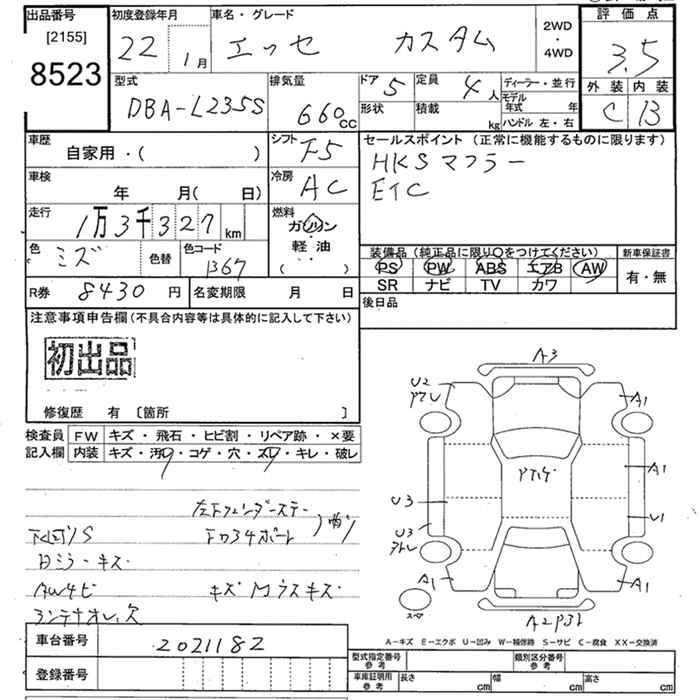 出品番号
[2155]
8523
初度登録年月
22 1月
車名・グレード
エッセ カスタム
2WD
・
4WD
評価点
3.5
外装 内装
C B
型式
DBA-L235S
排気量
660cc
ドア 5
形状
定員 4人
積載 kg
ディーラー・並行
モデル年式 年
ハンドル 左・右
車歴
自家用・( )
シフト F5
セールスポイント (正常に機能するものに限ります)
HKSマフラー
ETC
車検
年 月( 日)
冷房 AC
走行
1万3千327km
燃料
ガソリン
軽・油
( )
色 ミズ
色替
色コード
B67
装備品(純正品に限り○をつけてください)
PS PW ABS エアB AW
SR ナビ TV カワ
新車保証書
有・無
R券 8430円
名変期限 月 日
後日品
注意事項申告欄(不具合内容等は具体的に記入して下さい)
初出品
修復歴 有 [箇所 ]
検査員記入欄
FW キズ・飛石・ヒビ割・リペア跡・×要
内装 キズ・汚レ・コゲ・穴・スレ・キレ・破レ
下回りS
AWキズ
A3
U2
A1
A1
A1
U1
U3
U3
A1
A1
車台番号 2021182
登録番号
A−キズ E−エクボ U−凹み W−補修跡 S−サビ C−腐食 XX−交換済
型式指定番号
参考
類別区分番号
参考
車庫証明用
参考
長さ cm
幅 cm
高さ cm